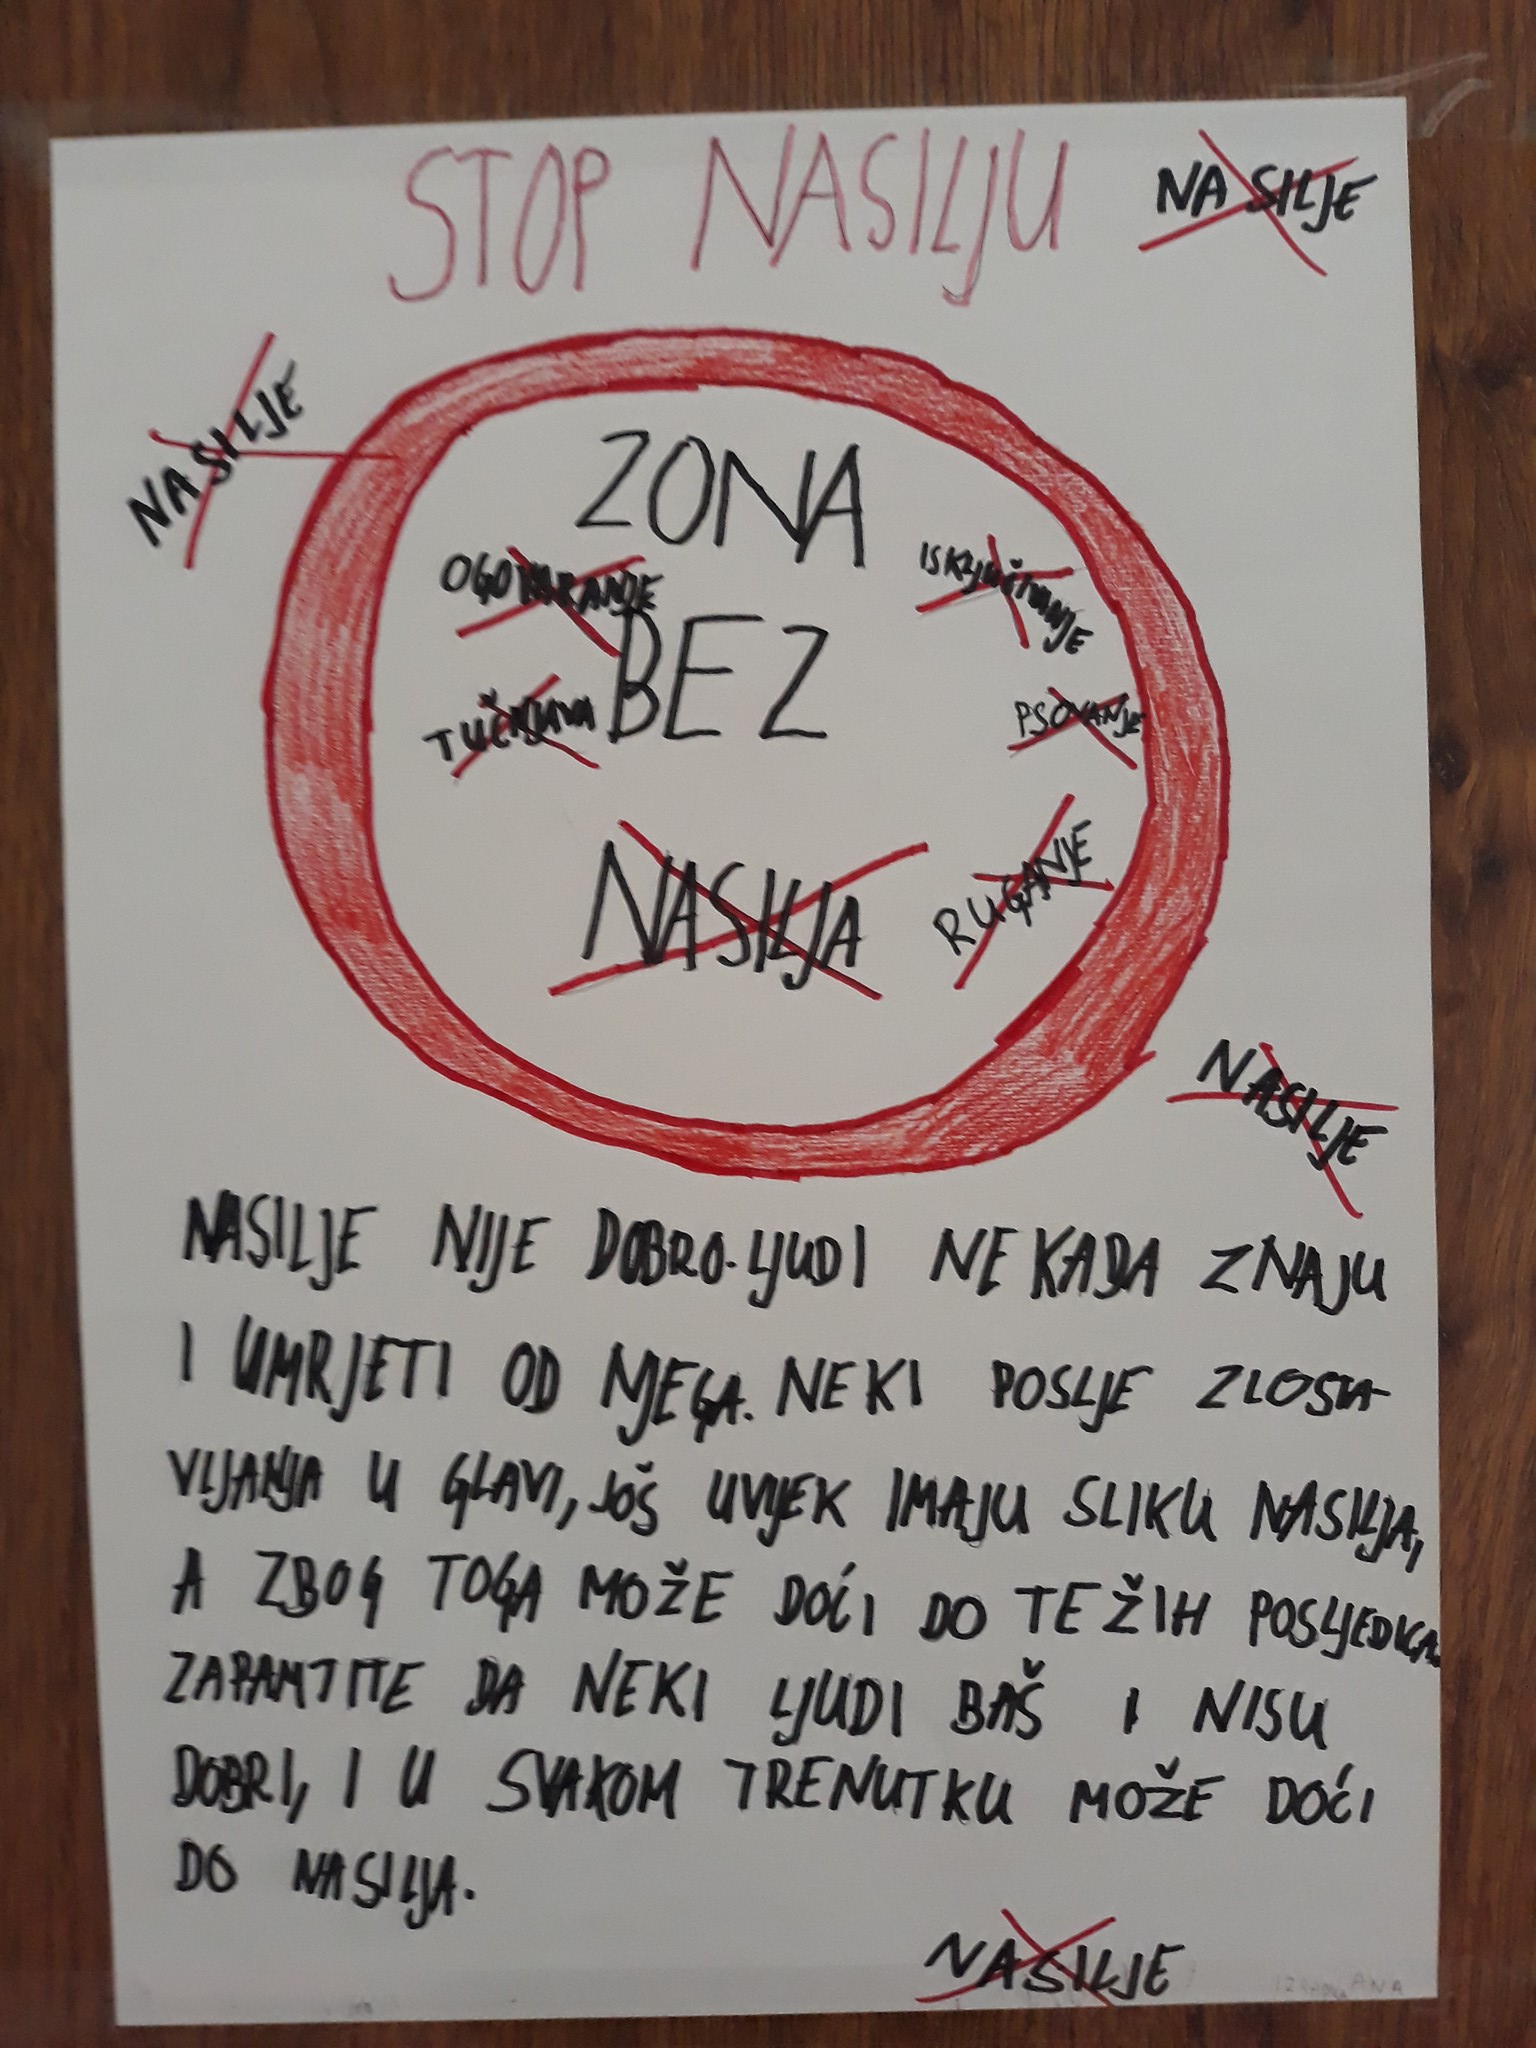 STOP NASILJU
NASILJE
NASILJE
ZONA
OGOVARANJE
ISKLJUČIVANJE
BEZ
TUČNJAVA
PSOVANJE
NASILJA
RUGANJE
NASILJE
NASILJE NIJE DOBRO. LJUDI NEKADA ZNAJU
I UMRJETI OD NJEGA. NEKI POSLJE ZLOSTA-
VLJANJA U GLAVI, JOŠ UVJEK IMAJU SLIKU NASILJA,
A ZBOG TOGA MOŽE DOĆI DO TEŽIH POSLJEDICA.
ZAPAMTITE DA NEKI LJUDI BAŠ I NISU
DOBRI, I U SVAKOM TRENUTKU MOŽE DOĆI
DO NASILJA.
NASILJE
ANA